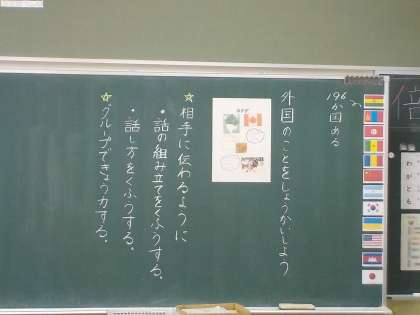 196
か国ある
外国のことをしょうかいしよう
☆相手に伝わるように
・話の組み立てをくふうする。
・話し方をくふうする。
☆グループできょう力する。
倍